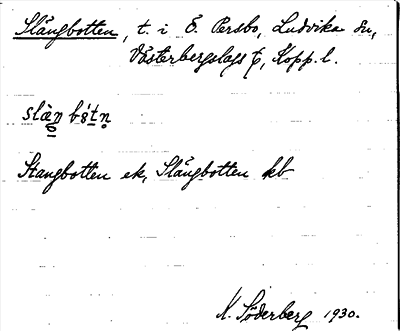 Slångbotten, t. i Ö. Persbo, Ludvika sn,
Västerbergslags hd, Kopp. l.
Stangbotten ek, Slångbotten kb
K. Söderberg 1930.